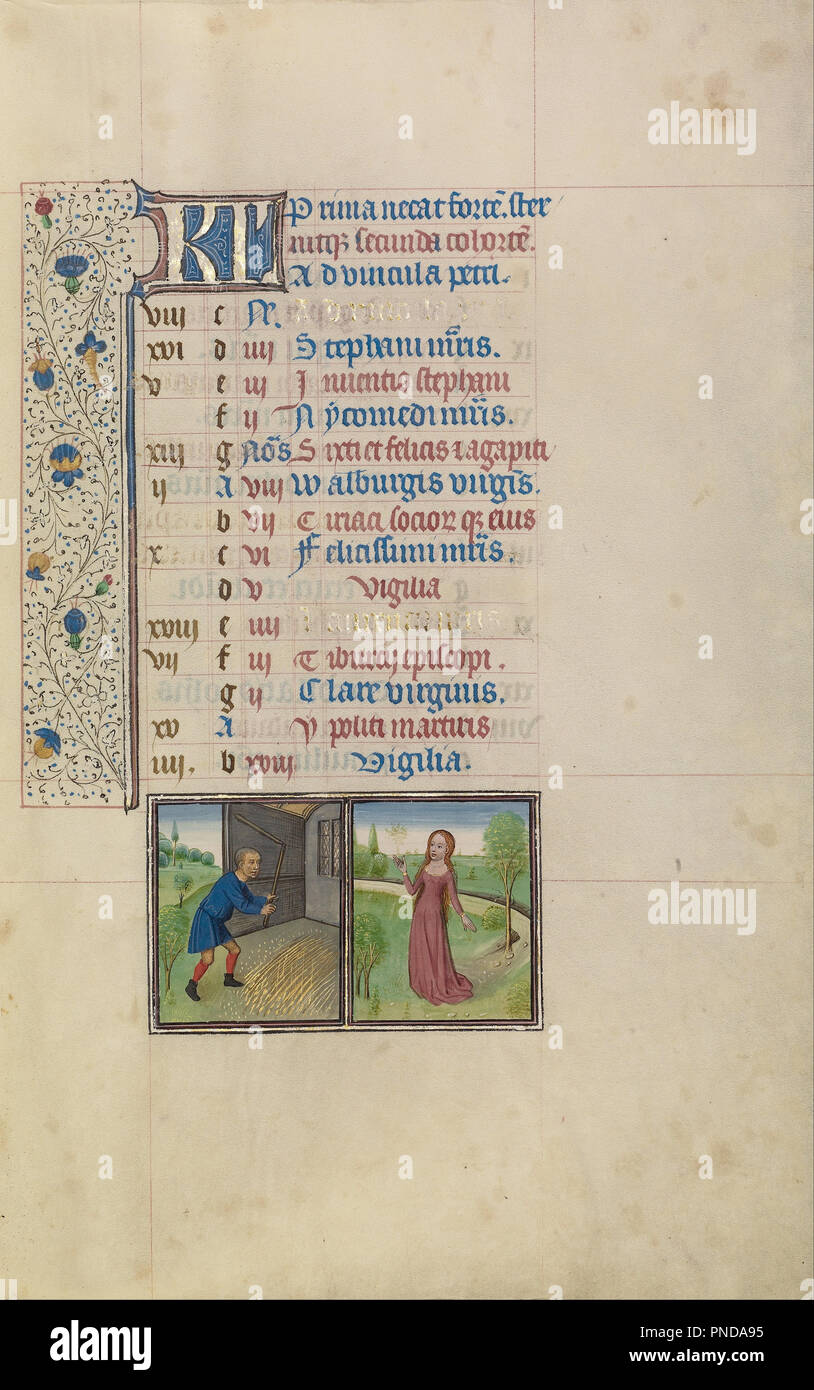 KL Prima necat fortē. ster
nitqʒ secunda cohortē.
Ad vincula petri.
viij c Ne.
xvi d iiij Stephani mr̄is.
v e iij Inuentio stephani
f ij Nycomedi mr̄is.
xiij g Nōs Sixti et felicis ⁊ agapiti
ij A viij Walburgis virgīs.
b vij Ciriaci socioꝝ qʒ eius
x c vi Felicissimi mr̄is.
d v vigilia
xviij e iiij
vij f iij Tiburcij episcopi.
g ij Clare virginis.
xv A Ypoliti martiris
iiij. b xviij Vigilia.
alamy
Image ID: PNDA95
www.alamy.com